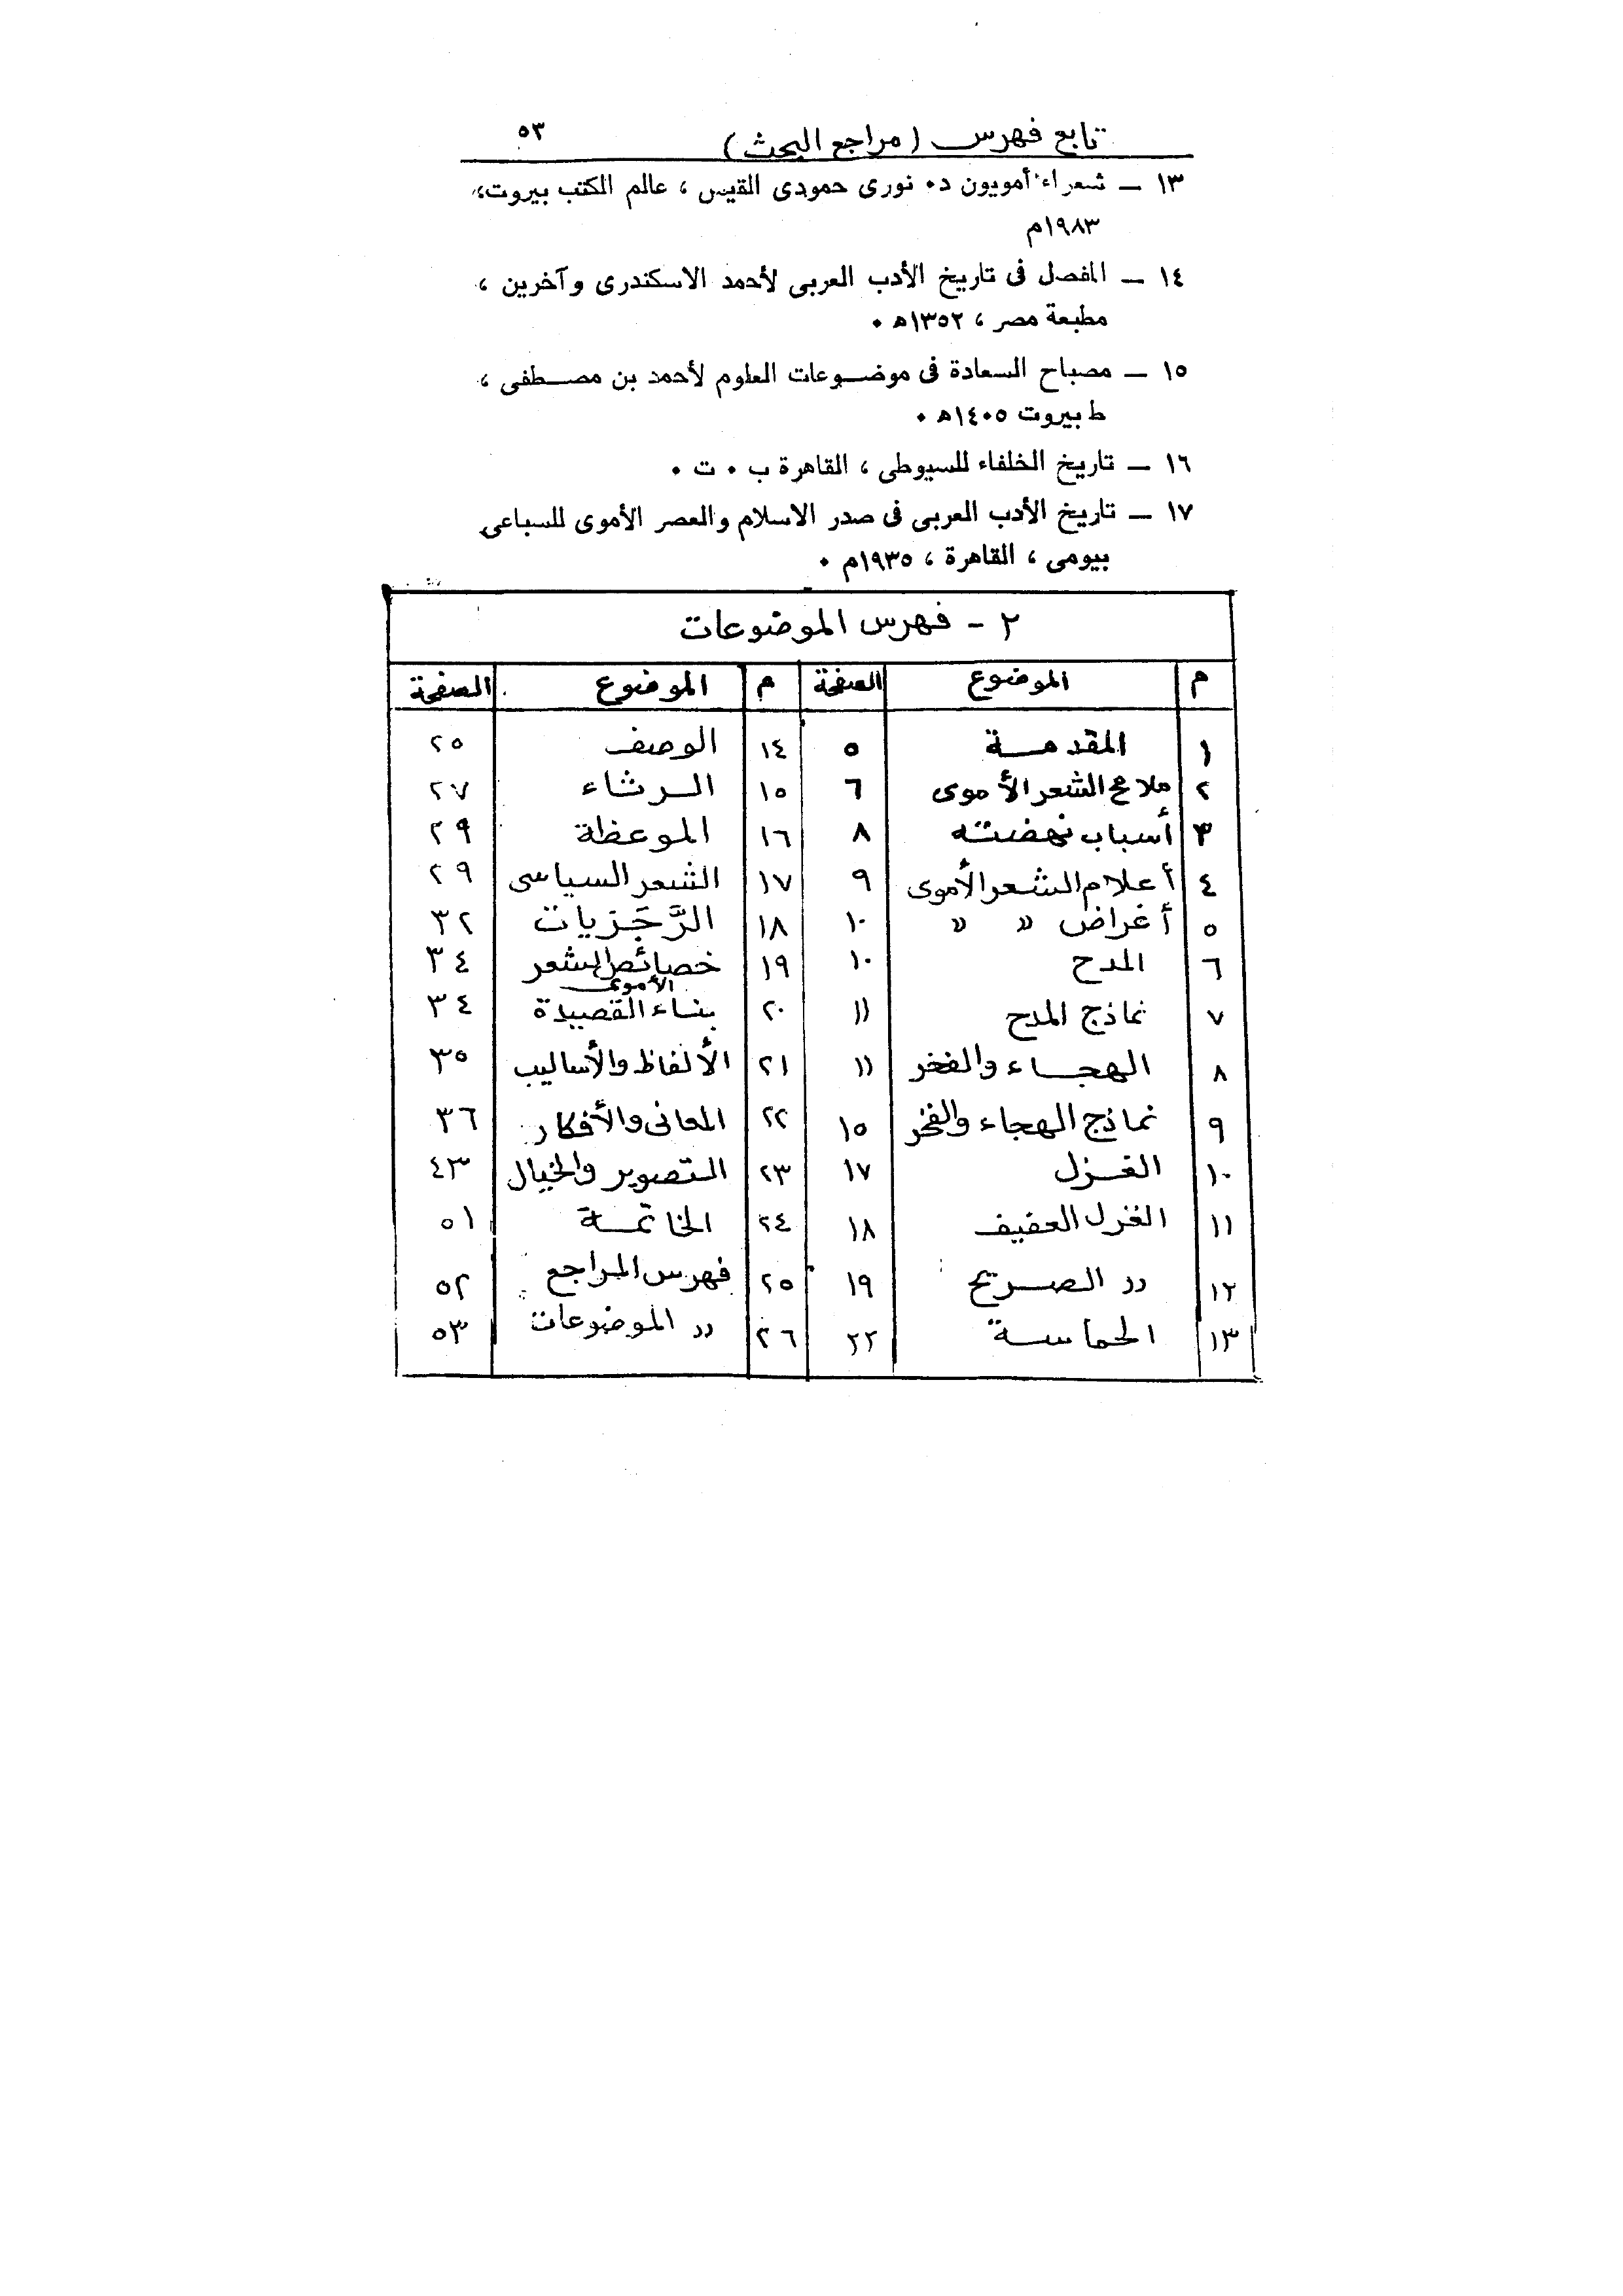 تابع فهرس (مراجع البحث) ٥٣
١٣ ــ شعراء أمويون د٠ نورى حمودى القيس ، عالم الكتب بيروت،
١٩٨٣م
١٤ ــ المفصل فى تاريخ الأدب العربى لأحمد الاسكندرى وآخرين ،
مطبعة مصر ، ١٣٥٢ه ٠
١٥ ــ مصباح السعادة فى موضوعات العلوم لأحمد بن مصطفى ،
ط بيروت ١٤٠٥ه ٠
١٦ ــ تاريخ الخلفاء للسيوطى ، القاهرة ب ٠ ت ٠
١٧ ــ تاريخ الأدب العربى فى صدر الاسلام والعصر الأموى للسباعى
بيومى ، القاهرة ، ١٩٣٥م ٠
٢ - فهرس الموضوعات
م الموضوع الصفحة م الموضوع الصفحة
١ المقدمة ٥ ١٤ الوصف ٢٥
٢ ملامح الشعر الأموى ٦ ١٥ الرثاء ٢٧
٣ أسباب نهضته ٨ ١٦ الموعظة ٢٩
٤ أعلام الشعر الأموى ٩ ١٧ الشعر السياسى ٢٩
٥ أغراض « « ١٠ ١٨ الرَّجَزيات ٣٢
٦ المدح ١٠ ١٩ خصائص الشعر الأموى ٣٤
٧ نماذج المدح ١١ ٢٠ بناء القصيدة ٣٤
٨ الهجاء والفخر ١١ ٢١ الألفاظ والأساليب ٣٥
٩ نماذج الهجاء والفخر ١٥ ٢٢ المعانى والأفكار ٣٦
١٠ الغزل ١٧ ٢٣ التصوير والخيال ٤٣
١١ الغزل العفيف ١٨ ٢٤ الخاتمة ٥١
١٢ رر الصريح ١٩ ٢٥ فهرس المراجع ٥٢
١٣ الحماسة ٢٢ ٢٦ رر الموضوعات ٥٣